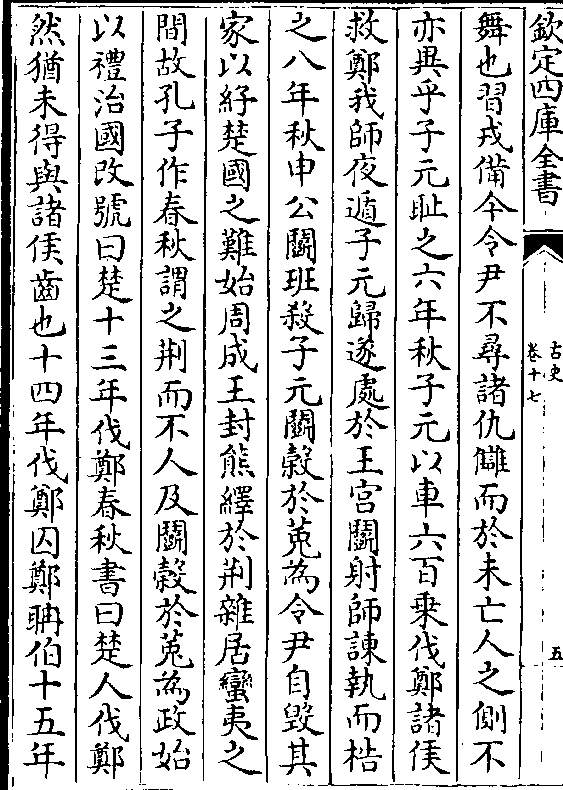 欽定四庫全書
古史
卷十七
五
舞也習戎備今令尹不尋諸仇讎而於未亡人之側不
亦異乎子元耻之六年秋子元以車六百乘伐鄭諸侯
救鄭我師夜遁子元歸遂處於王宮鬭射師諫執而梏
之八年秋申公鬭班殺子元鬭穀於菟為令尹自毀其
家以紓楚國之難始周成王封熊繹於荆雜居蠻夷之
間故孔子作春秋謂之荆而不人及鬭穀於菟為政始
以禮治國改號曰楚十三年伐鄭春秋書曰楚人伐鄭
然猶未得與諸侯齒也十四年伐鄭囚鄭聃伯十五年